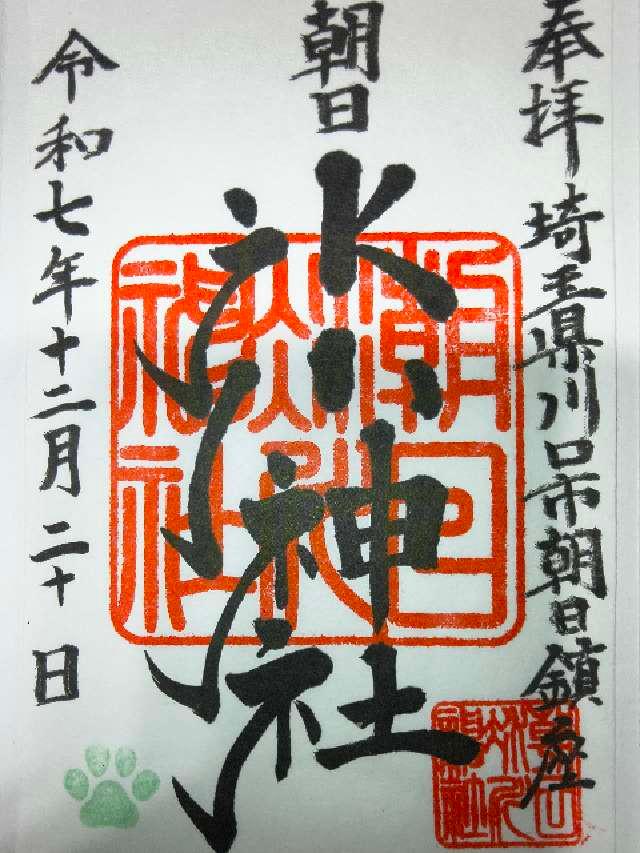 奉拝 埼玉県川口市朝日鎮座
朝日
氷川神社
令和七年十二月二十日
朝日
氷川
神社